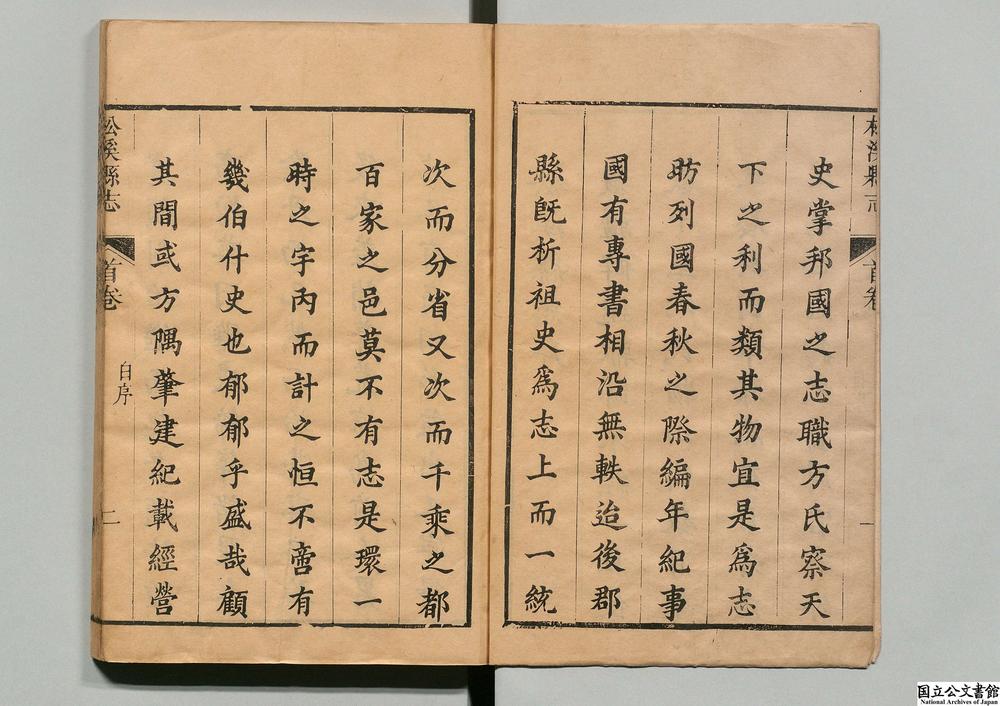 松溪縣志 首卷 一
史掌邦國之志職方氏察天
下之利而類其物宜是爲志
昉列國春秋之際編年紀事
國有專書相沿無軼迨後郡
縣旣析祖史爲志上而一統
次而分省又次而千乘之都
百家之邑莫不有志是環一
時之宇內而計之恒不啻有
幾伯什史也郁郁乎盛哉顧
其間或方隅肇建紀載經營
松溪縣志 首卷 自序 二
国立公文書館
National Archives of Japan